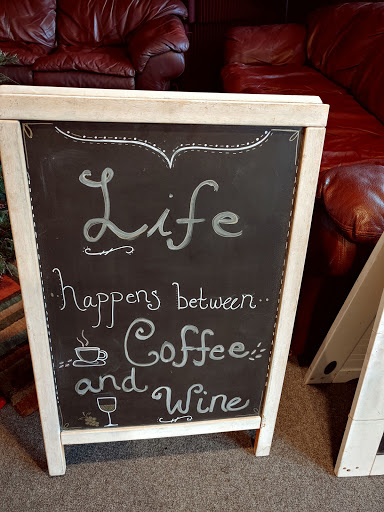 Life
happens between..
Coffee
and Wine